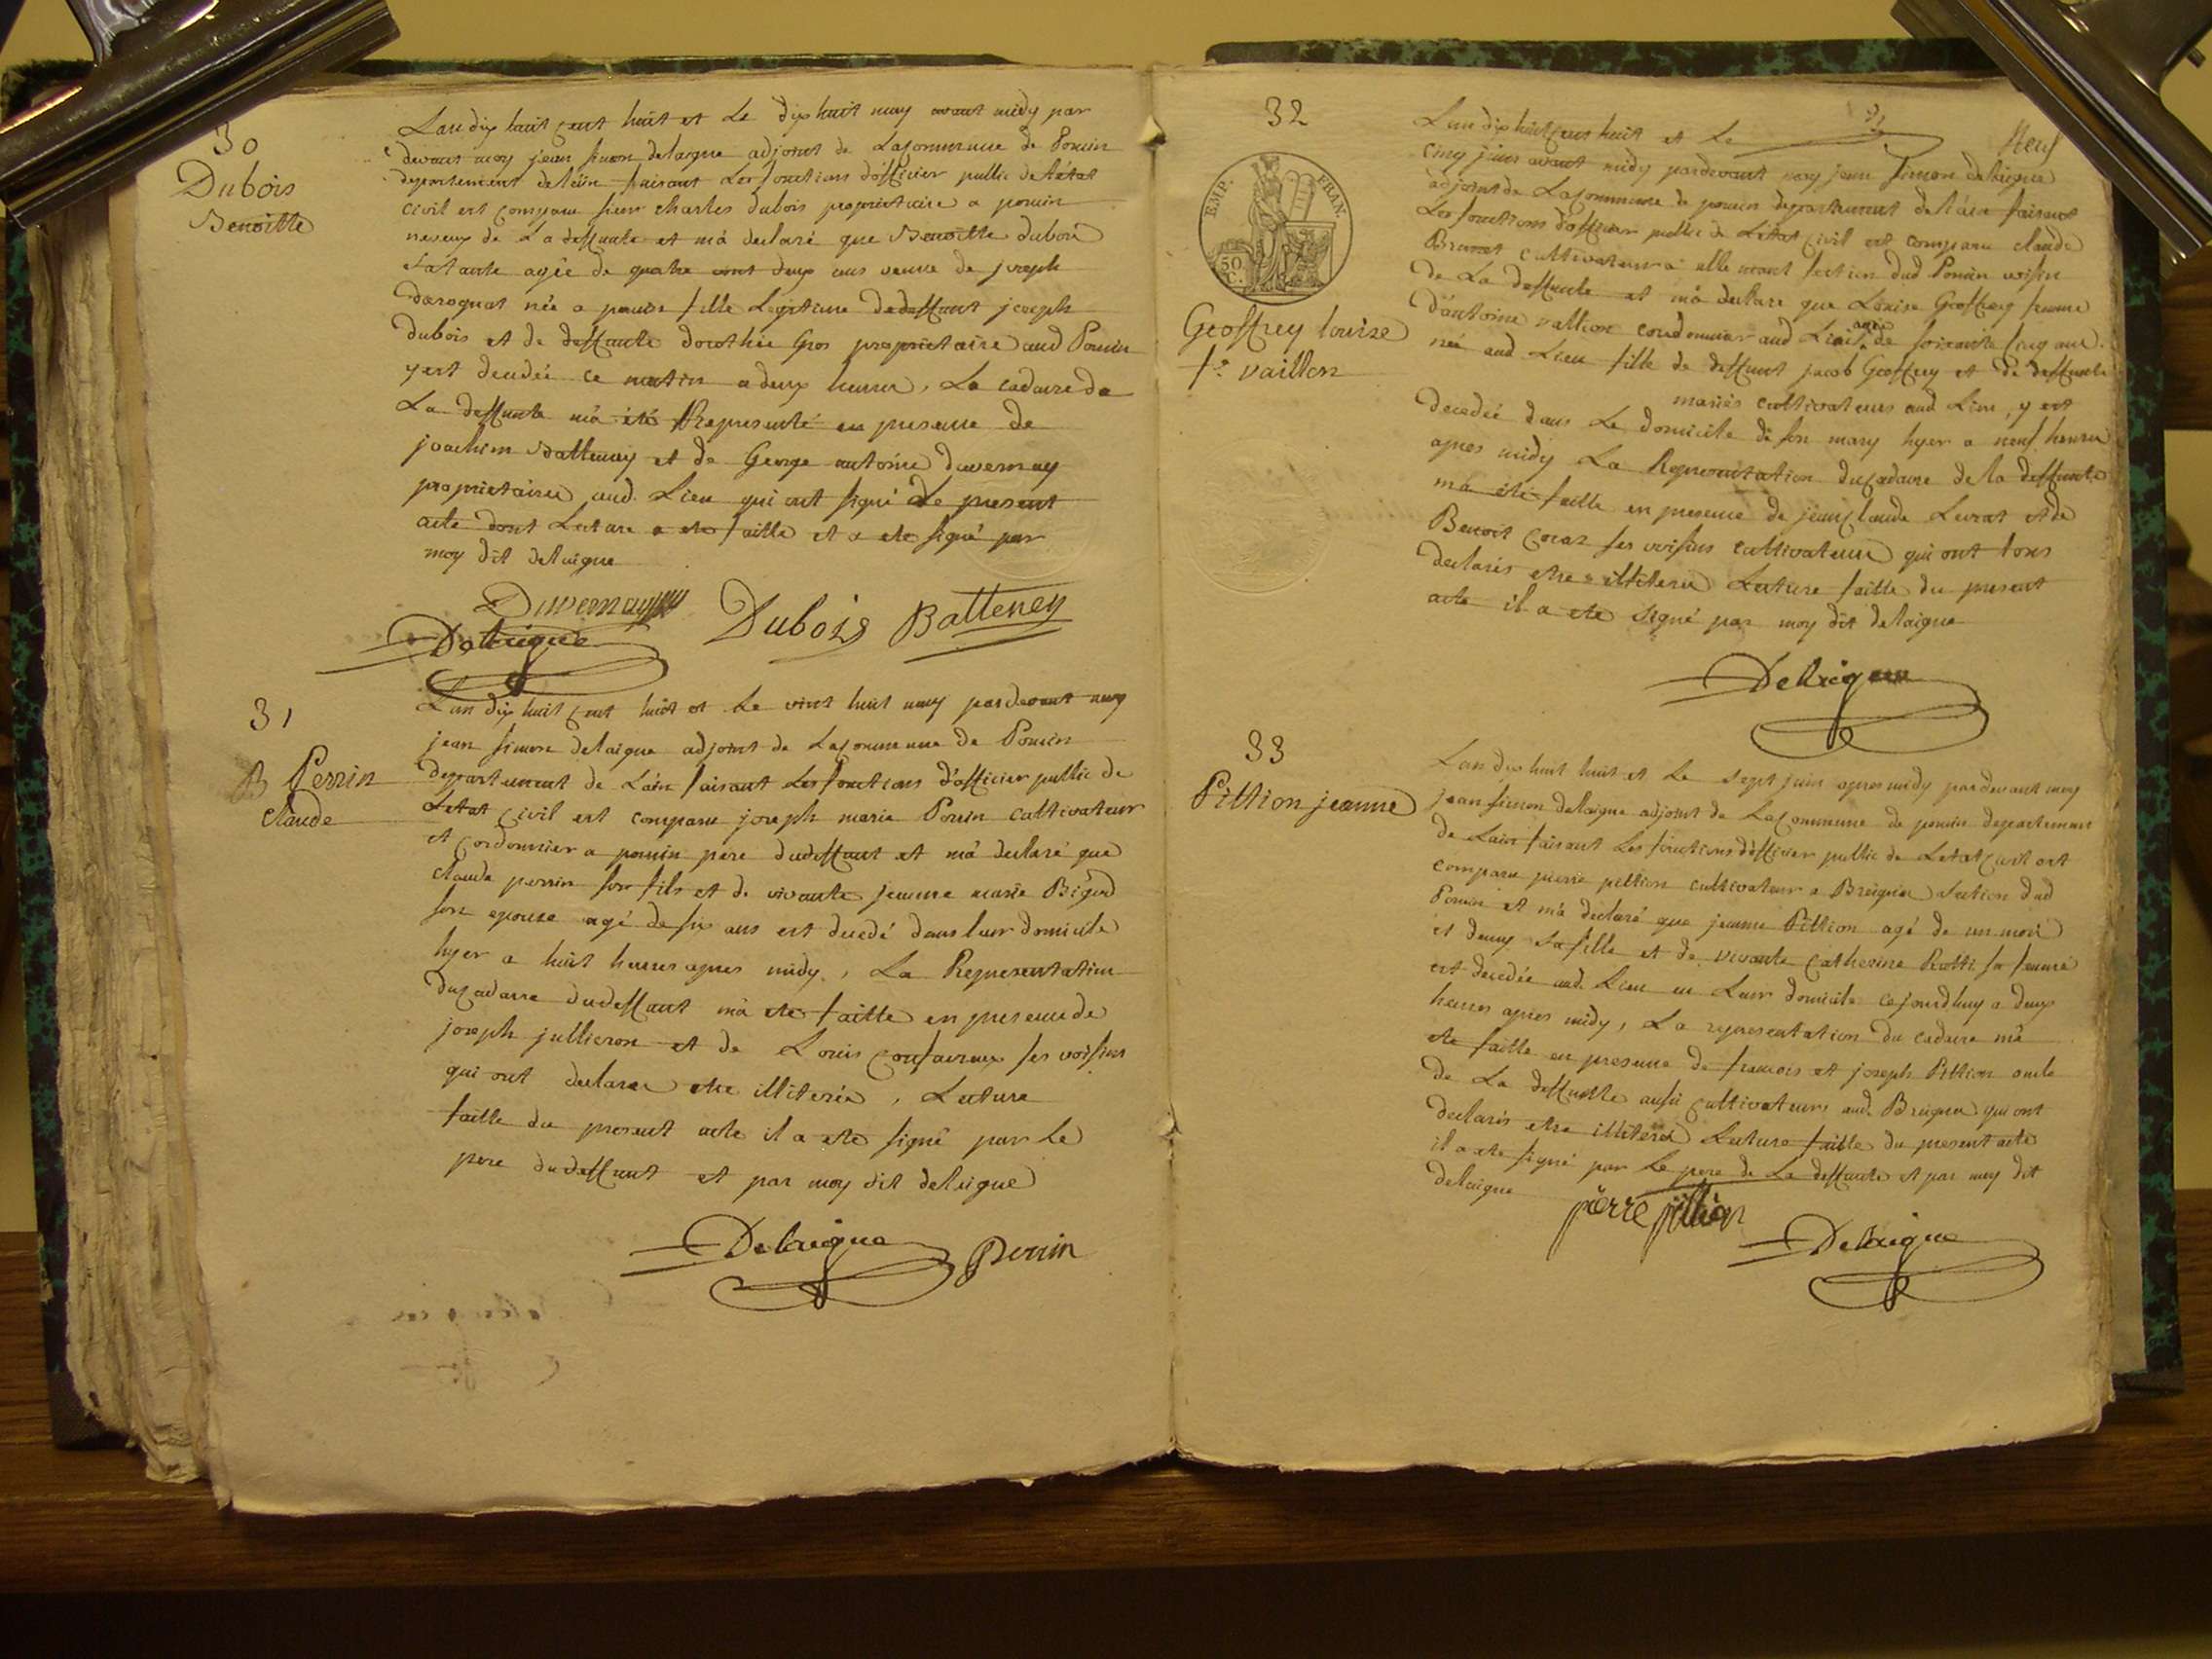 30
Dubois
Benoitte
Lan dix huit cent huit et Le dix huit may avant midy par
devant moy jean simon delaigue adjoint de Lacommune de Poncin
departement de l'ain faisant Les fonctions d'officier public de l'état
civil est comparu sieur charles dubois proprietaire a poncin
neveux de La deffunte et m'a declaré que Benoitte dubois
sa tante agée de quatre vint deux ans veuve de joseph
née a poncin fille Legitime dedeffunt joseph
dubois et de deffunte dorothée Gros proprietaire aud Poncin
y est decedée ce matin a deux heures, La cadavre de
La deffunte m'a été Representé en presence de
joachim Batteney et de George antoine duvernay
proprietaires aud. Lieu qui ont signé Le present
acte dont Lecture a ete faitte et a ete signé par
moy dit delaigue
Duvernay
Delaigue Dubois Batteney
31
B Perrin
claude
Lan dix huit cent huit et Le vint huit may pardevant moy
jean simon delaigue adjoint de Lacommune de Poncin
departement de L'ain faisant Les fonctions d'officier public de
Letat civil est comparu joseph marie Perrin cultivateur
et cordonnier a poncin pere dudeffunt et m'a declaré que
claude perrin son fils et de vivante jeanne marie
son epouse agé de six ans est decedé dans leur domicile
hyer a huit heures apres midy, La Representation
du cadavre dudeffunt m'a ete faitte en presence de
joseph jullieron et de Louis ses voisins
qui ont declarer etre illiterés, Lecture
faitte du present acte il a ete signé par Le
pere dudeffunt et par moy dit delaigue
Delaigue Perrin
32
EMP. FRAN.
50 C.
Geoffrey louize
fe vaillon
Lan dix huit cens huit et Le
Neuf
cinq juin avant midy pardevant moy jean simon delaigue
adjoint de Lacommune de poncin departement de l'ain faisant
Les fonctions d'officier public de Letat civil est comparu claude
Brunet cultivateur a allemont section dud Poncin voisin
de La deffunte et m'a declare que Louise Geoffrey femme
d'antoine vallion cordonnier aud Lieu agée de soixante cinq ans
née aud Lieu fille de deffunt jacob Geoffrey et de deffunte
mariés cultivateurs aud Lieu, y est
decedée dans Le domicile de son mary hyer a neuf heures
apres midy La Representation du cadavre de la deffunte
m'a ete faitte en presence de jean claude Levrat et de
Benoit ses voisins cultivateurs qui ont tous
declarés etre illiteres Lecture faitte du present
acte il a ete signé par moy dit delaigue
Delaigue
33
Pittion jeanne
Lan dix huit huit et Le sept juin apres midy pardevant moy
jean simon delaigue adjoint de Lacommune de poncin departement
de L'ain faisant Les fonctions d'officier public de Letat civil est
comparu pierre pittion cultivateur a Breignes section dud
Poncin et m'a declaré que jeanne Pittion agé de un mois
et demy sa fille et de vivante Catherine sa femme
est decedée aud Lieu en Leur domicile cejourdhuy a deux
heures apres midy, La representation du cadavre m'a
ete faitte en presence de francois et joseph Pittion oncle
de La deffunte aussi cultivateurs aud Breignes qui ont
declarés etre illiteres Lecture faitte du present acte
il a ete signé par Le pere de La deffunte et par moy dit
delaigue
pierre pittion
Delaigue